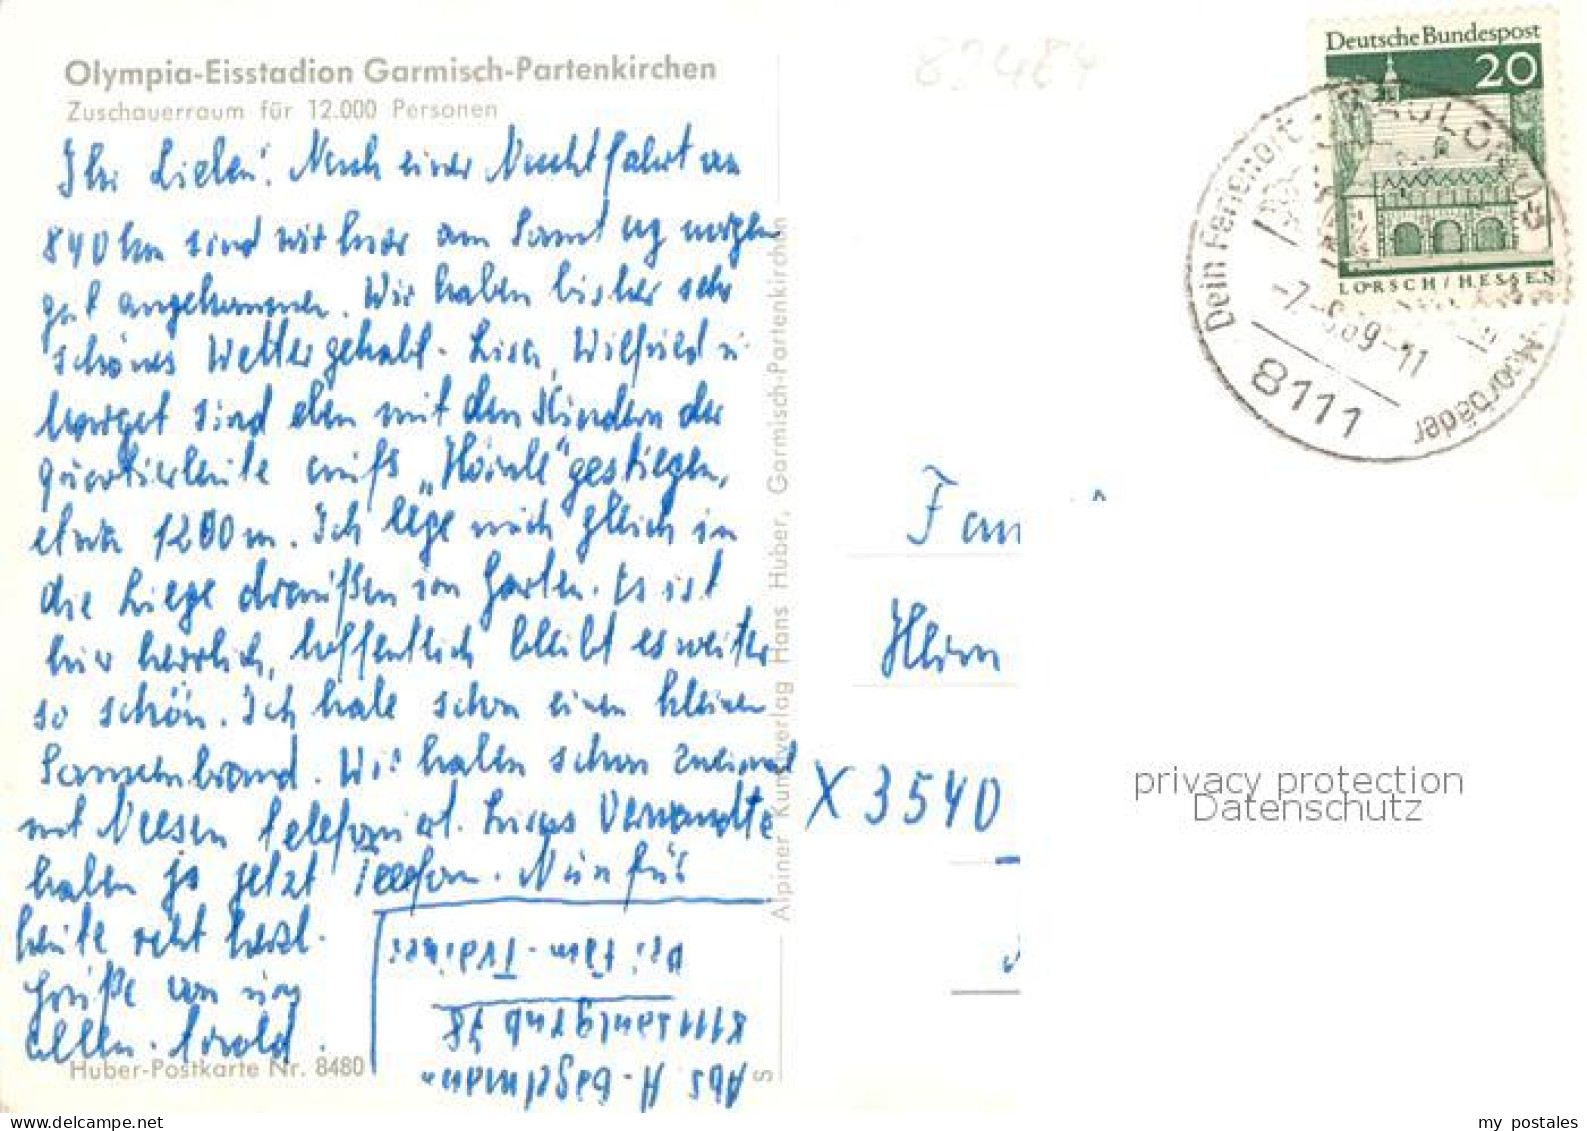 Olympia-Eisstadion Garmisch-Partenkirchen
Zuschauerraum für 12.000 Personen
Ihr Lieben! Nach einer Nachtfahrt von
840 km sind wir hier am Samstag morgen
gut angekommen. Wir haben bisher sehr
schönes Wetter gehabt. Lisa, Wilfried u.
Margret sind eben mit den Kindern der
Quartierleute aufs „Hörnle" gestiegen,
etwa 1200 m. Ich lege mich gleich in
die Liege draußen im Garten. Es ist
hier herrlich, hoffentlich bleibt es weiter
so schön. Ich habe schon einen kleinen
Sonnenbrand. Wir haben schon zweimal
mit Neesen telefoniert. Lisas Verwandte
haben ja jetzt Telefon. Nun für
heute recht herzl.
Grüße von uns
allen. Arnold.
Huber-Postkarte Nr. 8480
Abs A. Hegelmann
8111 Saulgrub 78
bei Fam.
S
Alpiner Kunstverlag Hans Huber, Garmisch-Partenkirchen
Deutsche Bundespost
20
LORSCH/HESSEN
Dein Ferienort
Moorbäder
-7.-8.69-11
8111
Fam
Herrn
X 3540
privacy protection
Datenschutz
delcampe.net
my postales